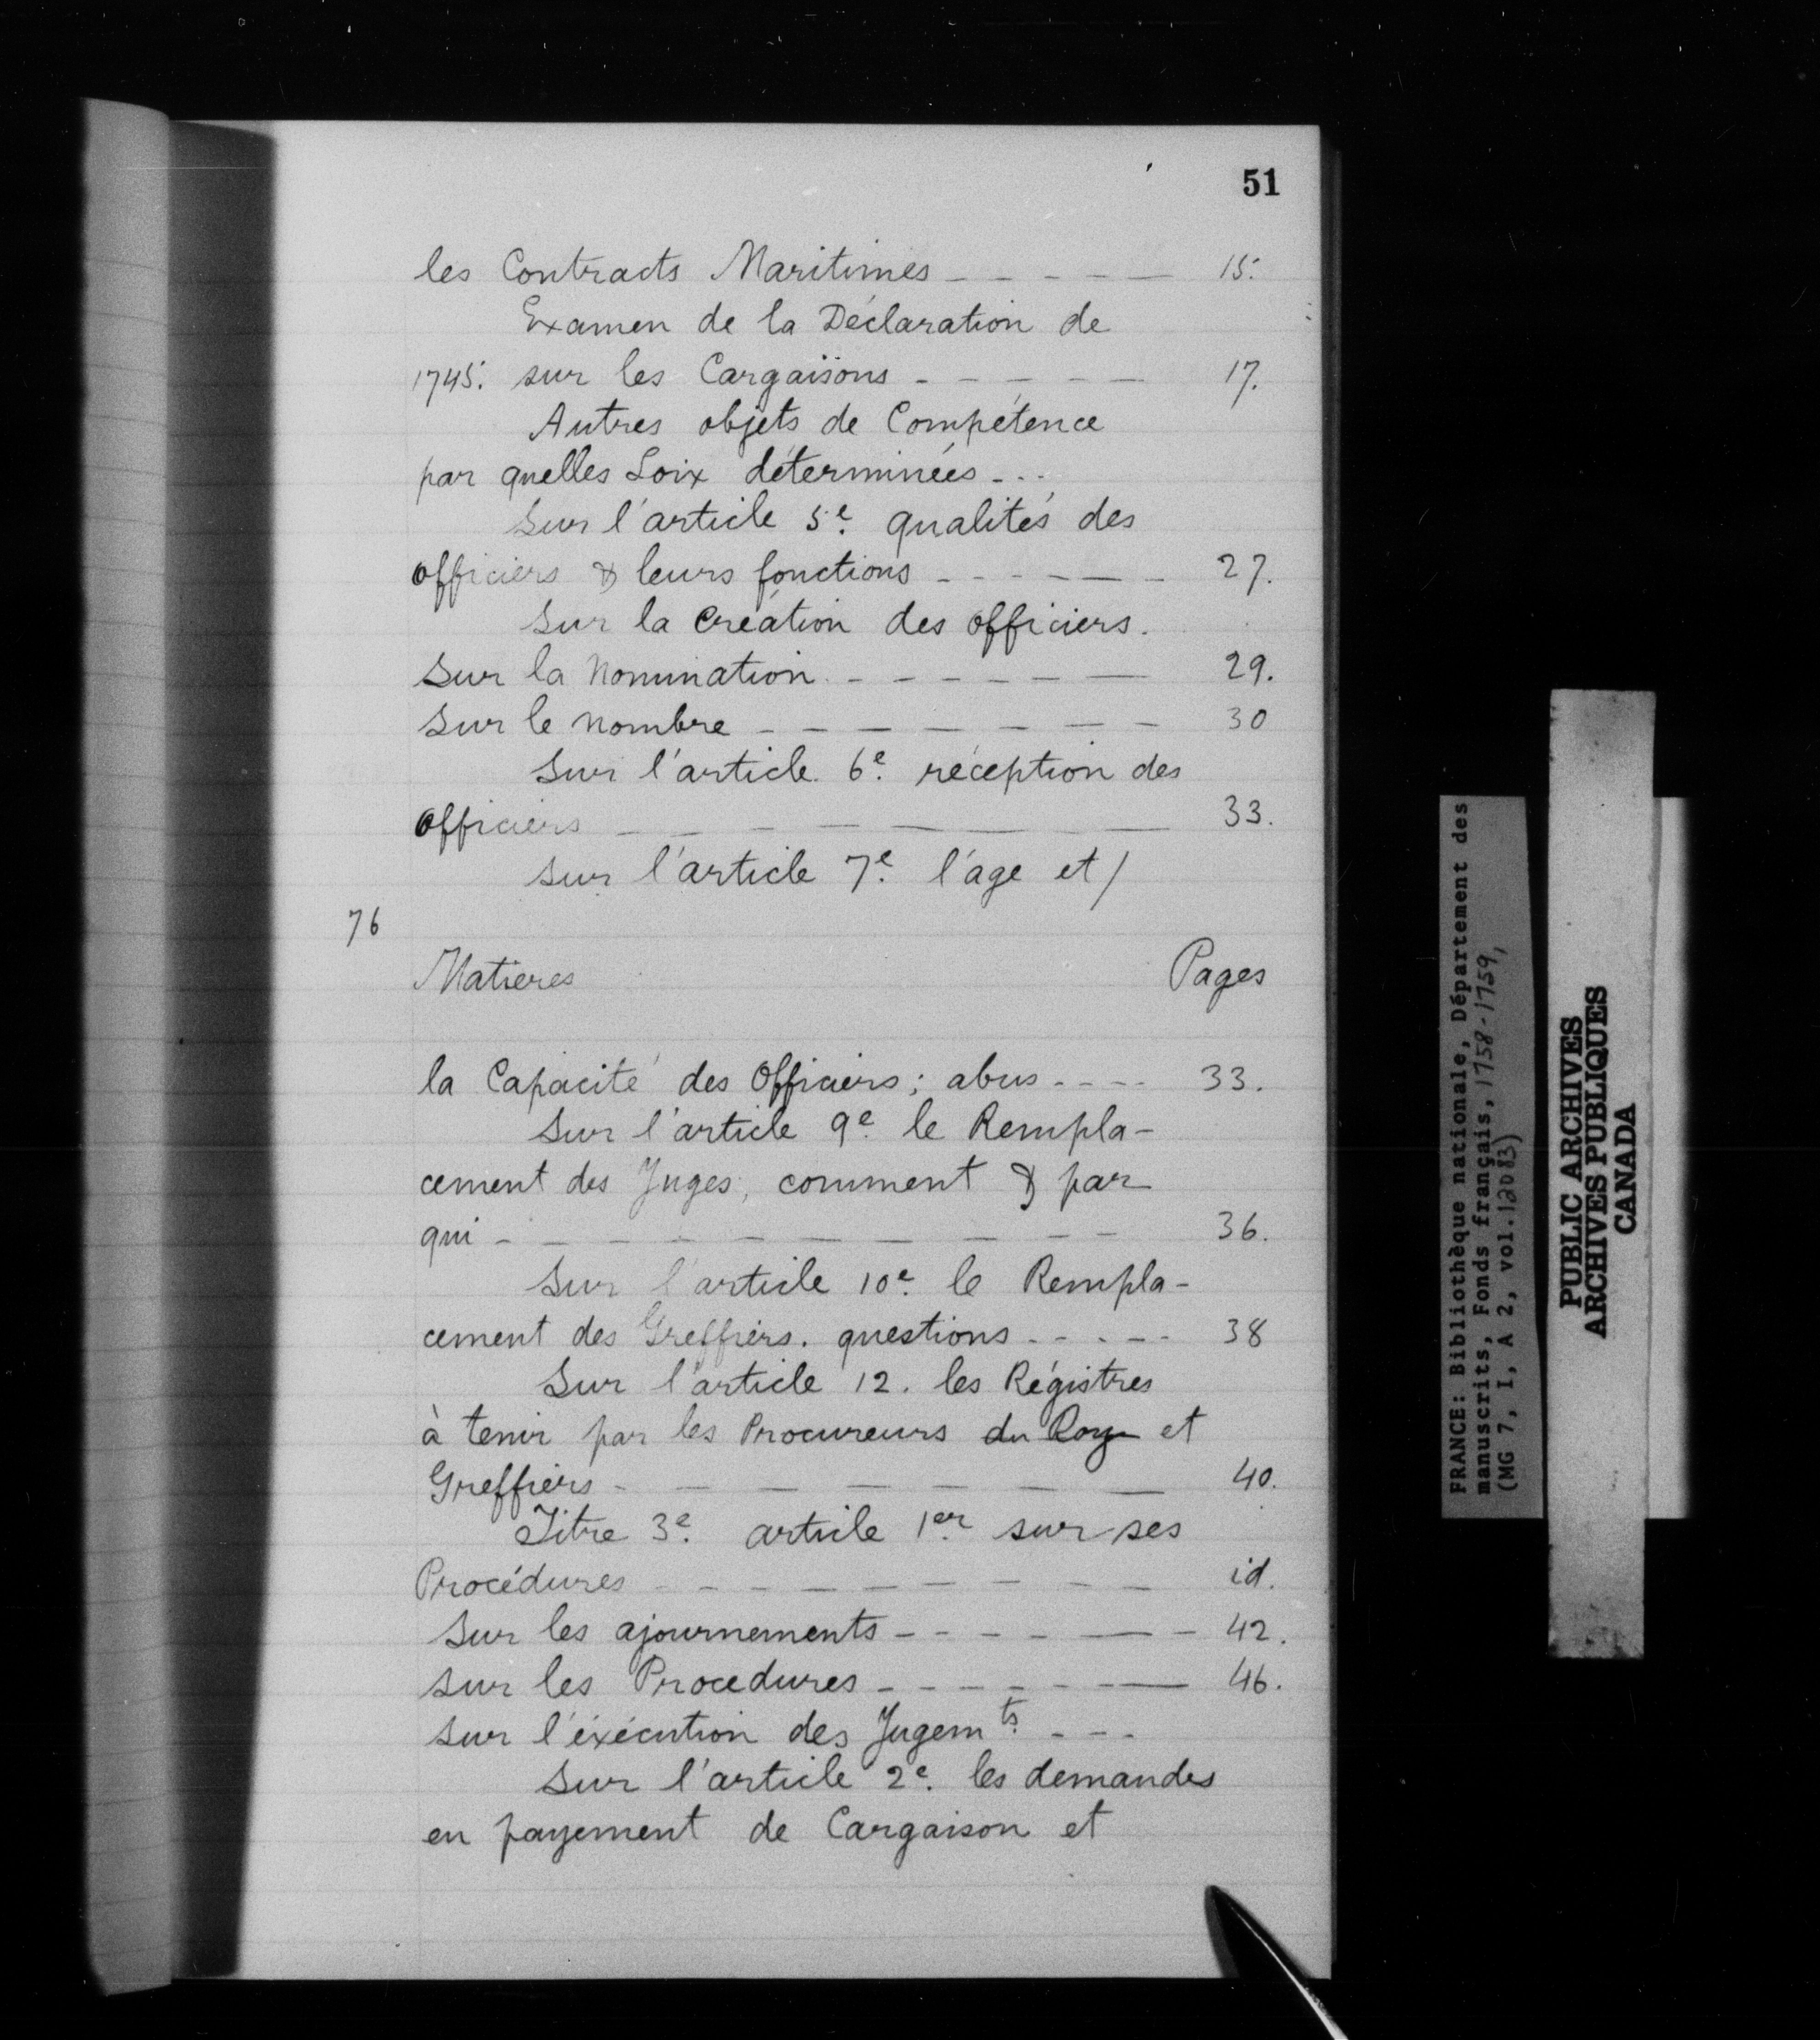 51
les Contracts Maritimes - - - - - 15.
Examen de la Déclaration de
1745. sur les Cargaisons - - - - - 17.
Autres objets de Compétence
par quelles Loix déterminées - - .
Sur l'article 5e. qualités des
officiers & leurs fonctions - - - - - - 27.
Sur la Création des officiers.
Sur la Nomination. - - - - - - - 29.
Sur le nombre - - - - - - - - 30
Sur l'article 6e. réception des
officiers - - - - - - - - 33.
Sur l'article 7e. l'age et /
76
Matieres Pages
la Capacité des Officiers ; abus - - - - 33.
Sur l'article 9e. le Rempla-
cement des Juges, comment & par
qui - - - - - - - - - - 36.
Sur l'article 10e. le Rempla-
cement des Greffiers. questions - - - - - 38
Sur l'article 12. les Régistres
à tenir par les Procureurs du Roy et
Greffiers - - - - - - - - 40.
Titre 3e. article 1er. sur ses
Procédures - - - - - - - - - id.
Sur les ajournements - - - - - - - 42.
Sur les Procedures - - - - - - - 46.
Sur l'éxécution des Jugemts. - - -
Sur l'article 2e. les demandes
en payement de Cargaison et
FRANCE: Bibliothèque nationale, Département des
manuscrits, Fonds français, 1758-1759,
(MG 7, I, A 2, vol. 12083)
PUBLIC ARCHIVES
ARCHIVES PUBLIQUES
CANADA